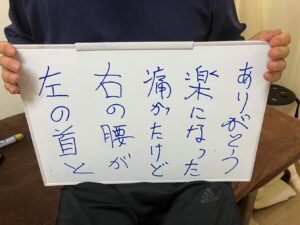 左の首と
右の腰が
痛かたけど
楽になった
ありがとう